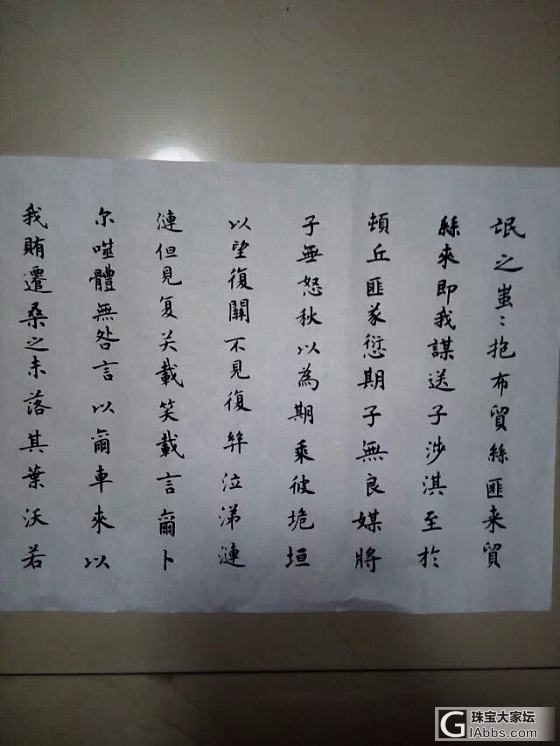 氓之蚩〻抱布貿絲匪来貿
絲來即我謀送子涉淇至於
頓丘匪我愆期子無良媒將
子無怒秋以為期乘彼垝垣
以望復關不見復關泣涕漣
漣但見复关載笑載言爾卜
尔噬體無咎言以爾車來以
我賄遷桑之未落其葉沃若
珠宝大家坛
GIAbbs.com